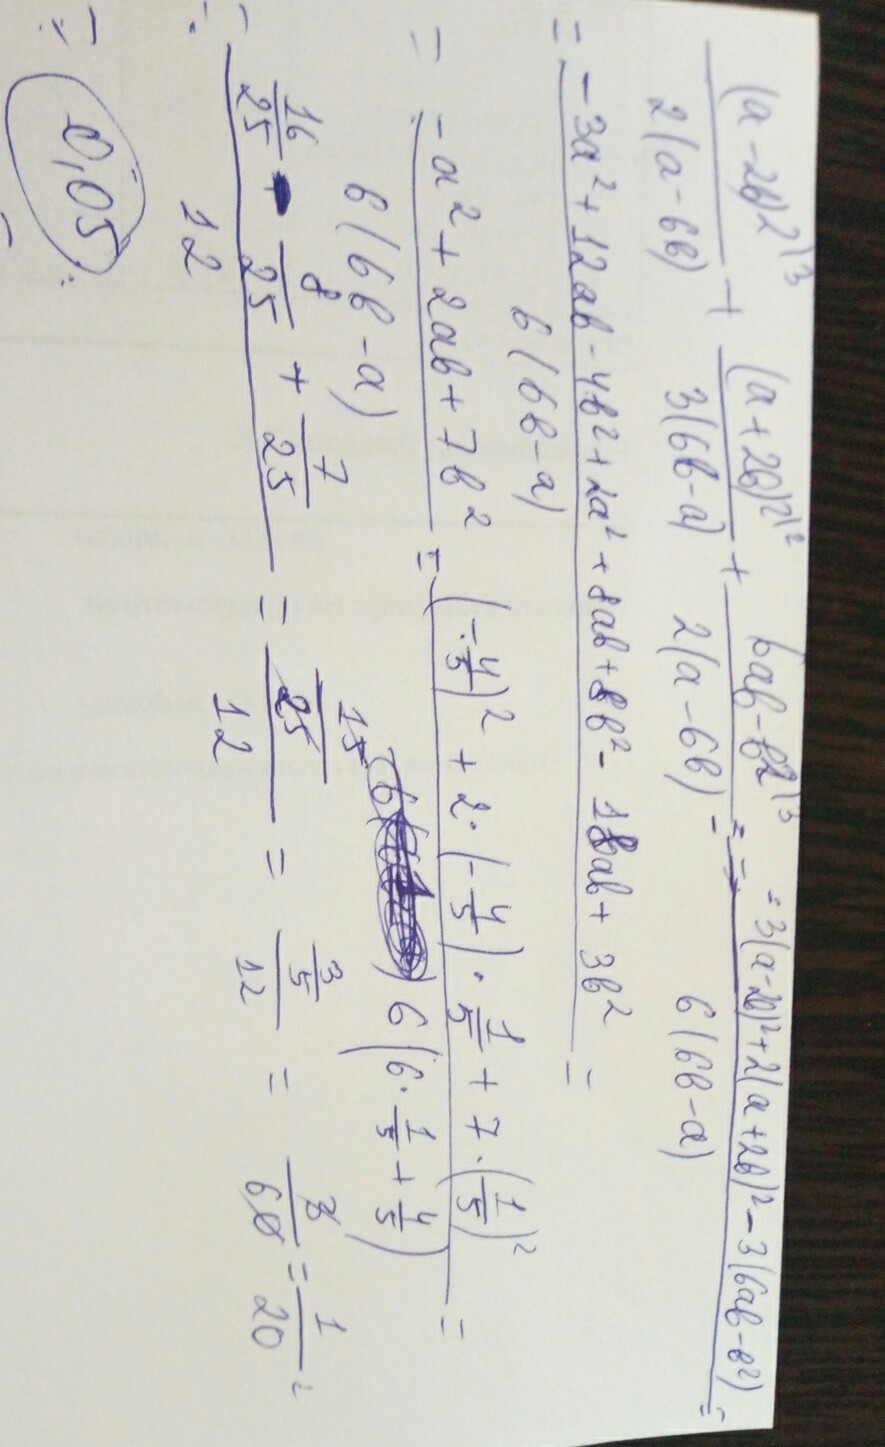 (a-2b)²\3 / 2(a-6b) + (a+2b)²\2 / 3(6b-a) + 6ab-b²\3 / 2(a-6b) = = -3(a-2b)²+2(a+2b)²-3(6ab-b²) / 6(6b-a) =
= -3a²+12ab-4b²+2a²+8ab+8b²-18ab+3b² / 6(6b-a) =
= -a²+2ab+7b² / 6(6b-a) = (-4/5)²+2·(-4/5)·1/5+7·(1/5)² / 6(6·1/5+4/5) =
= 16/25 - 8/25 + 7/25 / 12 = 15/25 / 12 = 3/5 / 12 = 3/60 = 1/20 =
= 0,05.